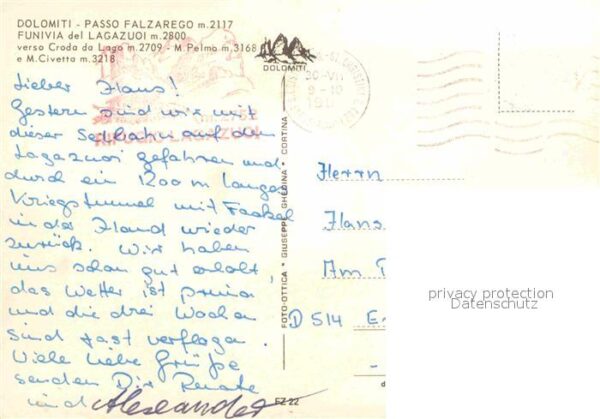 DOLOMITI - PASSO FALZAREGO m.2117
FUNIVIA del LAGAZUOI m.2800
verso Croda da Lago m.2709 - M. Pelmo m.3168
e M. Civetta m.3218
DOLOMITI
RIFUGIO LAGAZUOI
Lieber Hans!
Gestern sind wir mit
dieser Seilbahn auf den
Lagazuoi gefahren und
durch ein 1200 m langes
Kriegstunnel mit Fackel
in der Hand wieder
zurück. Wir haben
uns schon gut erholt,
das Wetter ist prima,
und die drei Wochen
sind fast verflogen.
Viele liebe Grüße
senden Dir Renate
und Alexander
FOTO-OTTICA • GIUSEPPE GHEDINA • CORTINA
EZ 22
Herrn
Hans
Am
D 514
privacy protection
Datenschutz